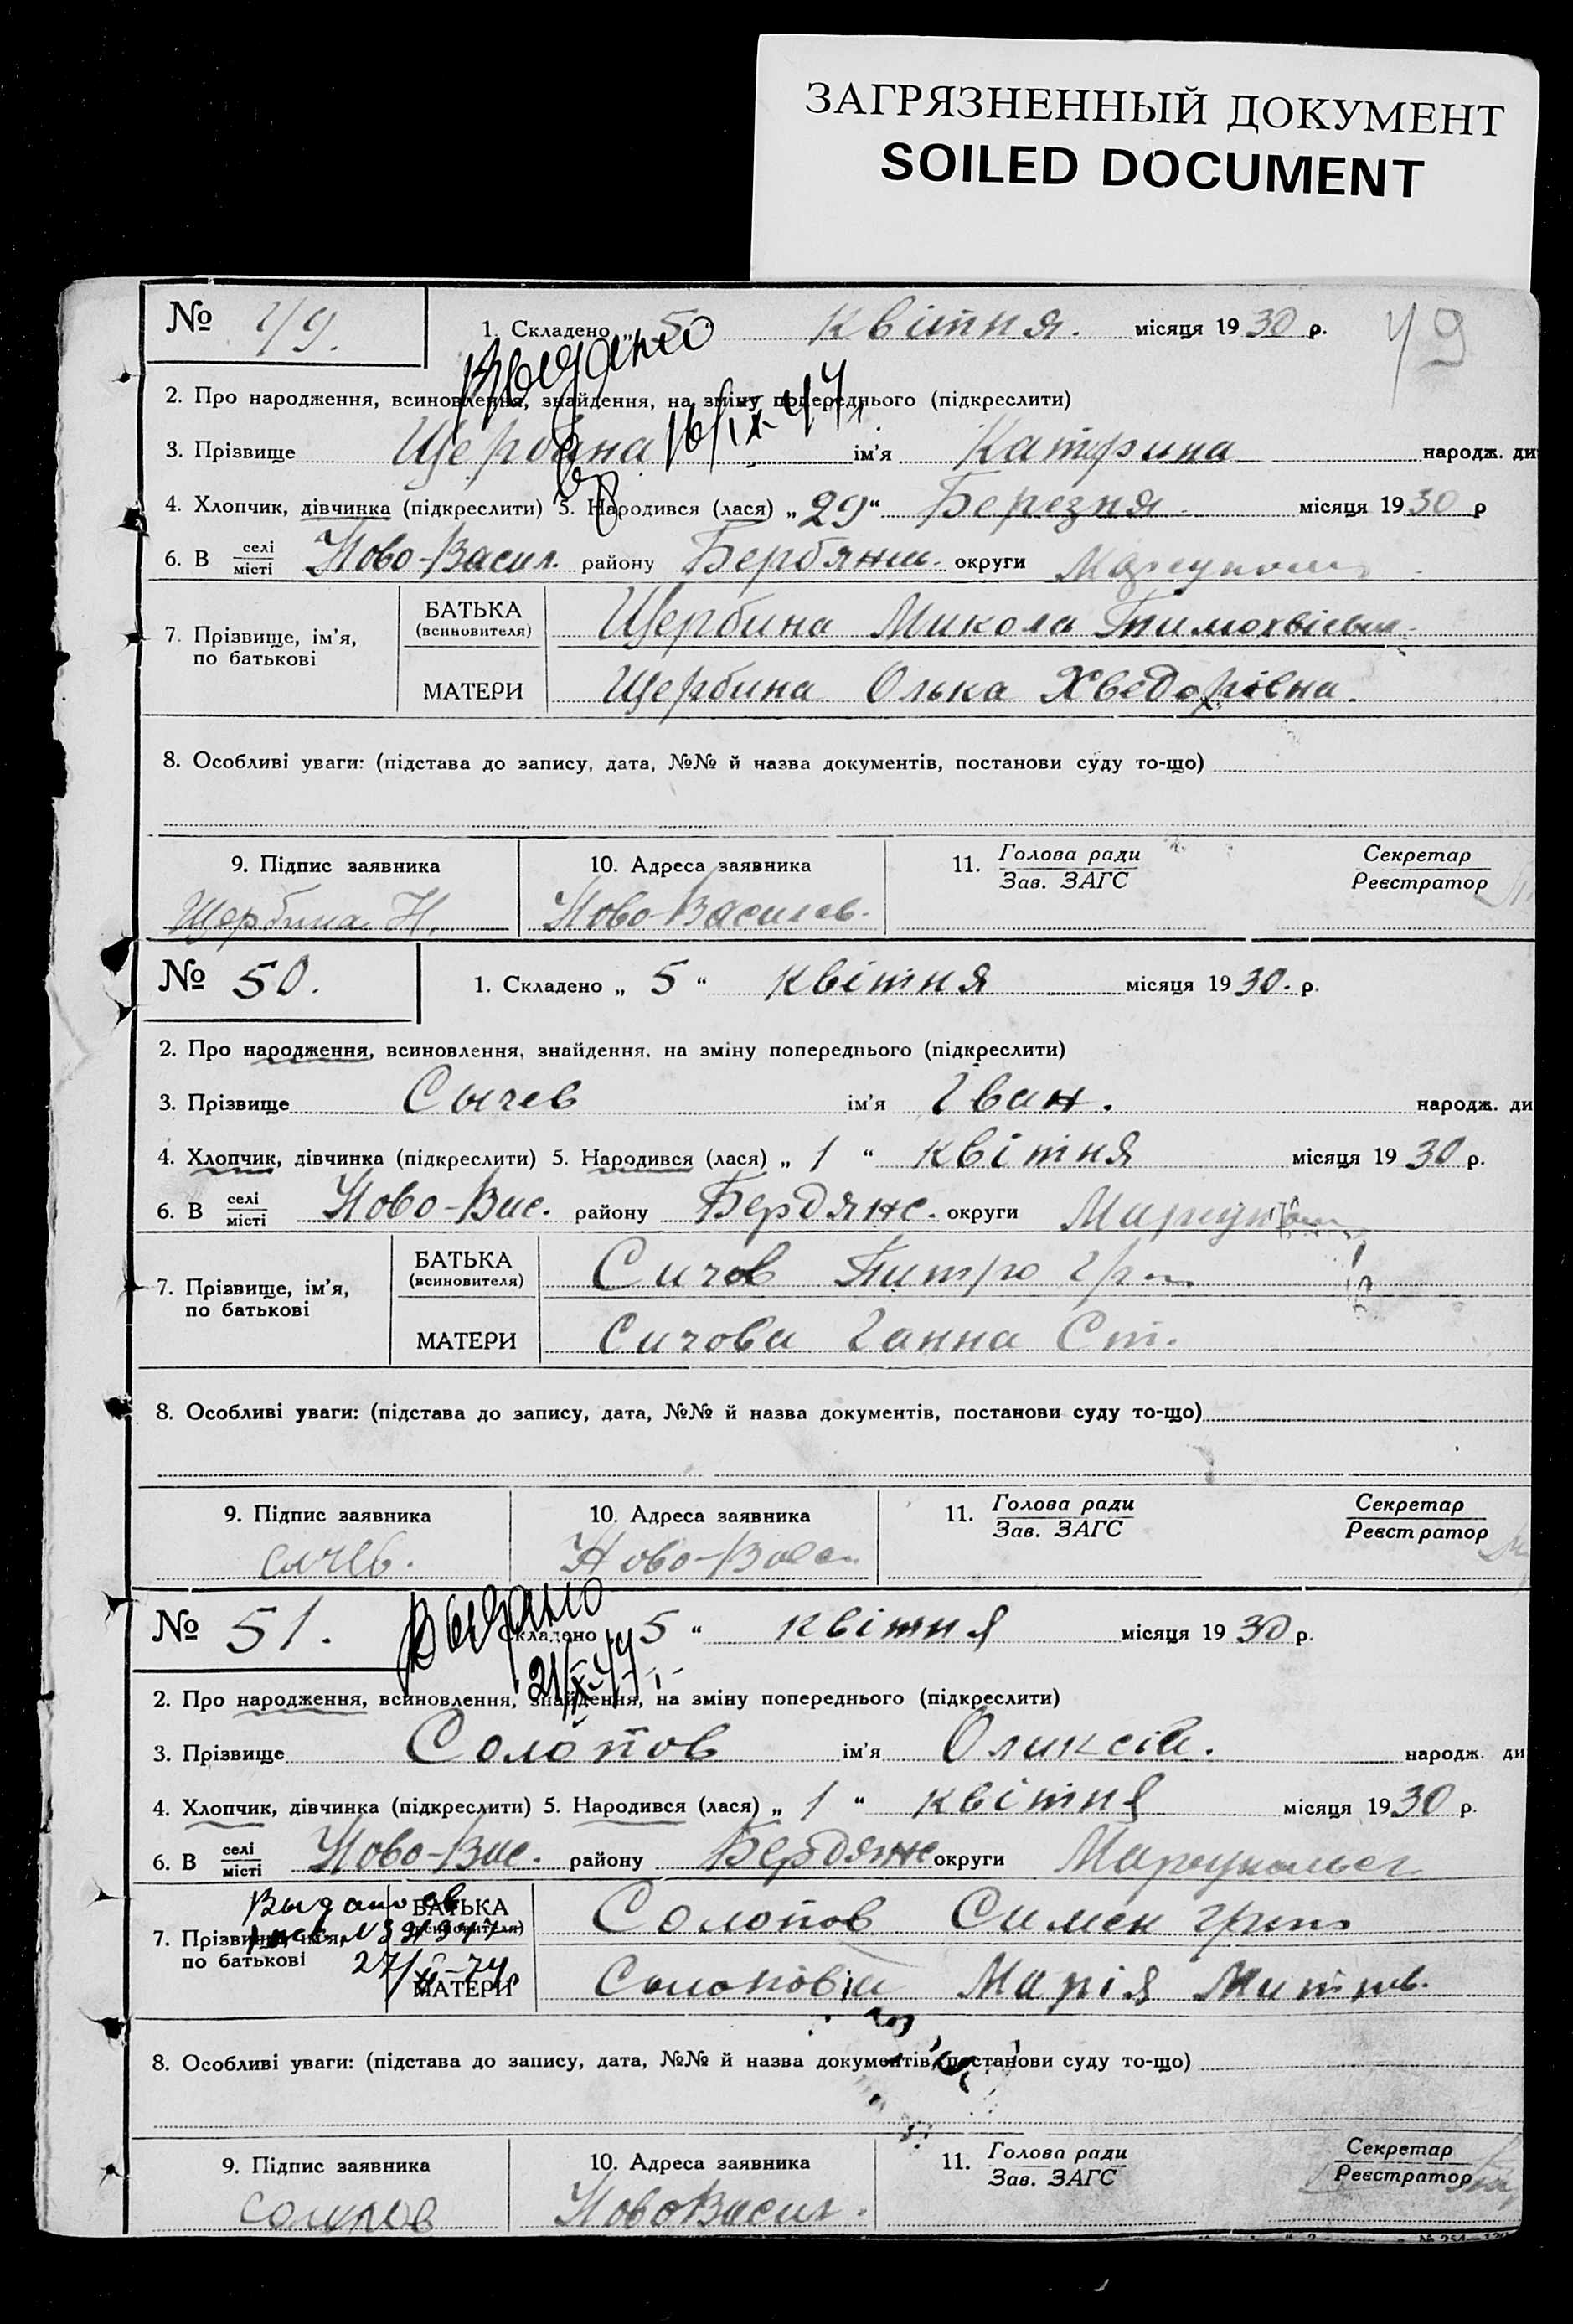 ЗАГРЯЗНЕННЫЙ ДОКУМЕНТ
SOILED DOCUMENT
№ 49. 1. Складено „ 5 “ Квітня. місяця 19 30 р. 49
Выдано
16/IX-44
2. Про народження, всиновлення, знайдення, на зміну попереднього (підкреслити)
3. Прізвище Щербина ім'я Катерина народж. ди
4. Хлопчик, дівчинка (підкреслити) 5. Народився (лася) „ 29 “ Березня місяця 19 30 р
6. В селі/місті Ново-Васил. району Бердянш. округи
7. Прізвище, ім'я, по батькові БАТЬКА (всиновителя) Щербина Микола Тимохвієвич
МАТЕРИ Щербина Олька Хведорівна.
8. Особливі уваги: (підстава до запису, дата, №№ й назва документів, постанови суду то-що)
9. Підпис заявника 10. Адреса заявника 11. Голова ради/Зав. ЗАГС Секретар/Реєстратор
Щербина Н. Ново-Василев.
№ 50. 1. Складено „ 5 “ квітня місяця 19 30. р.
2. Про народження, всиновлення, знайдення, на зміну попереднього (підкреслити)
3. Прізвище Сычев ім'я Іван. народж. ди
4. Хлопчик, дівчинка (підкреслити) 5. Народився (лася) „ 1 “ квітня місяця 19 30 р.
6. В селі/місті Ново-Вас. району Бердянс. округи
7. Прізвище, ім'я, по батькові БАТЬКА (всиновителя) Сичов Питро
МАТЕРИ Сичова Ганна Ст.
8. Особливі уваги: (підстава до запису, дата, №№ й назва документів, постанови суду то-що)
9. Підпис заявника 10. Адреса заявника 11. Голова ради/Зав. ЗАГС Секретар/Реєстратор
№ 51. Складено 5 “ квітня місяця 19 30 р.
Выдано
21/X-44
2. Про народження, всиновлення, знайдення, на зміну попереднього (підкреслити)
3. Прізвище Солопов ім'я Оликсій. народж. ди
4. Хлопчик, дівчинка (підкреслити) 5. Народився (лася) „ 1 “ квітня місяця 19 30 р.
6. В селі/місті Ново-Вас. району Бердянс округи
Выдано
7. Прізвище, ім'я, по батькові БАТЬКА (всиновителя) Солопов Симен
МАТЕРИ Солопова Марія
8. Особливі уваги: (підстава до запису, дата, №№ й назва документів, постанови суду то-що)
9. Підпис заявника 10. Адреса заявника 11. Голова ради/Зав. ЗАГС Секретар/Реєстратор
Солопов НовоВасил.